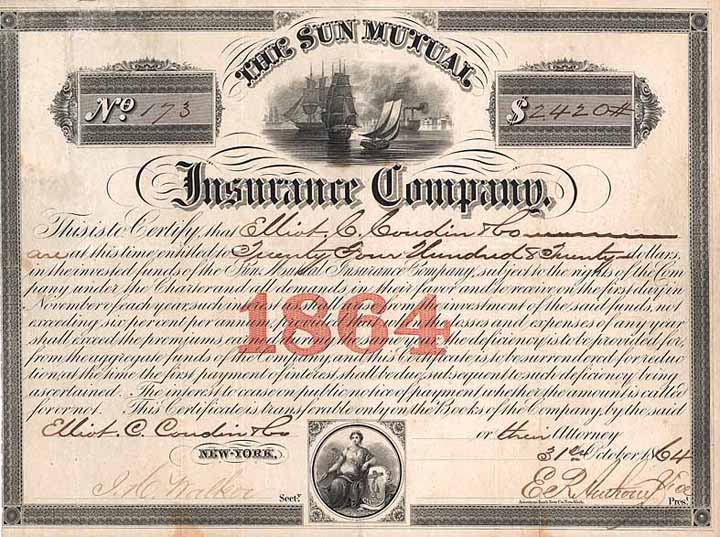 THE SUN MUTUAL
No 173
$2420#
Insurance Company.
This is to Certify, that Elliot C. Coudin & Co
are at this time entitled to Twenty Four Hundred & Twenty dollars,
in the invested funds of the Sun Mutual Insurance Company, subject to the rights of the Com
pany under the Charter and all demands, in their favor and to receive on the first day in
November of each year, such interest as may accrue from the investment of the said funds, not
exceeding six per cent per annum, provided losses and expenses of any year
shall exceed the premiums the deficiency is to be provided for,
from the aggregate funds of the Company, and this Certificate is to be surrendered for reduc
tion, at the time the first payment of interest, shall be due, subsequent to such deficiency being
ascertained. The interest to cease on public notice of payment whether the amount is called
for or not. This Certificate is transferable only on the Books of the Company, by the said
1864
Elliot. C. Coudin & Co or their Attorney
NEW-YORK, 31st October 1864
J. H. Walker Sect.y
E. R. Anthony Pres.t
American Bank Note Co. New York.